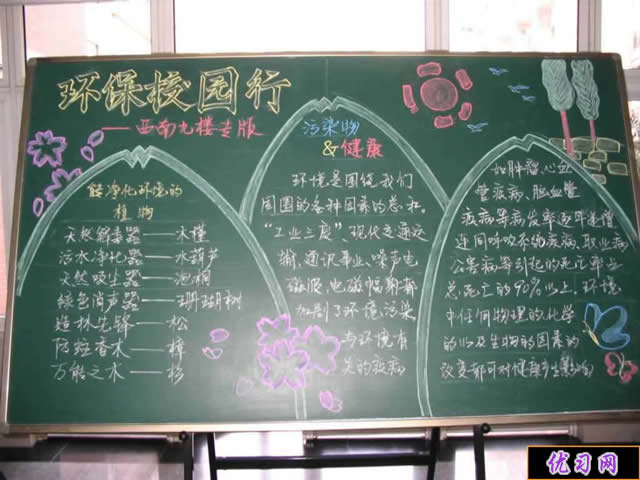 环保校园行
——西南九楼专版
能净化环境的
植物
天然解毒器——木槿
污水净化器——水葫芦
天然吸尘器——泡桐
绿色消声器——珊瑚树
造林先锋——松
防蛀香木——樟
万能之木——杉
污染物
&健康
环境是围绕我们
周围的各种因素的总和。
“工业三废”、现代交通运
输、通讯事业、噪声电
磁波、电磁辐射都
加剧了环境污染
与环境有
关的疾病
如肿瘤、心血
管疾病、脑血管
疾病等病发率逐年递增
连同呼吸系统疾病、职业病
公害病等引起的死亡率占
总死亡的90%以上，环境
中任何物理的化学
的以及生物的因素的
改变都可对健康产生影响
优习网